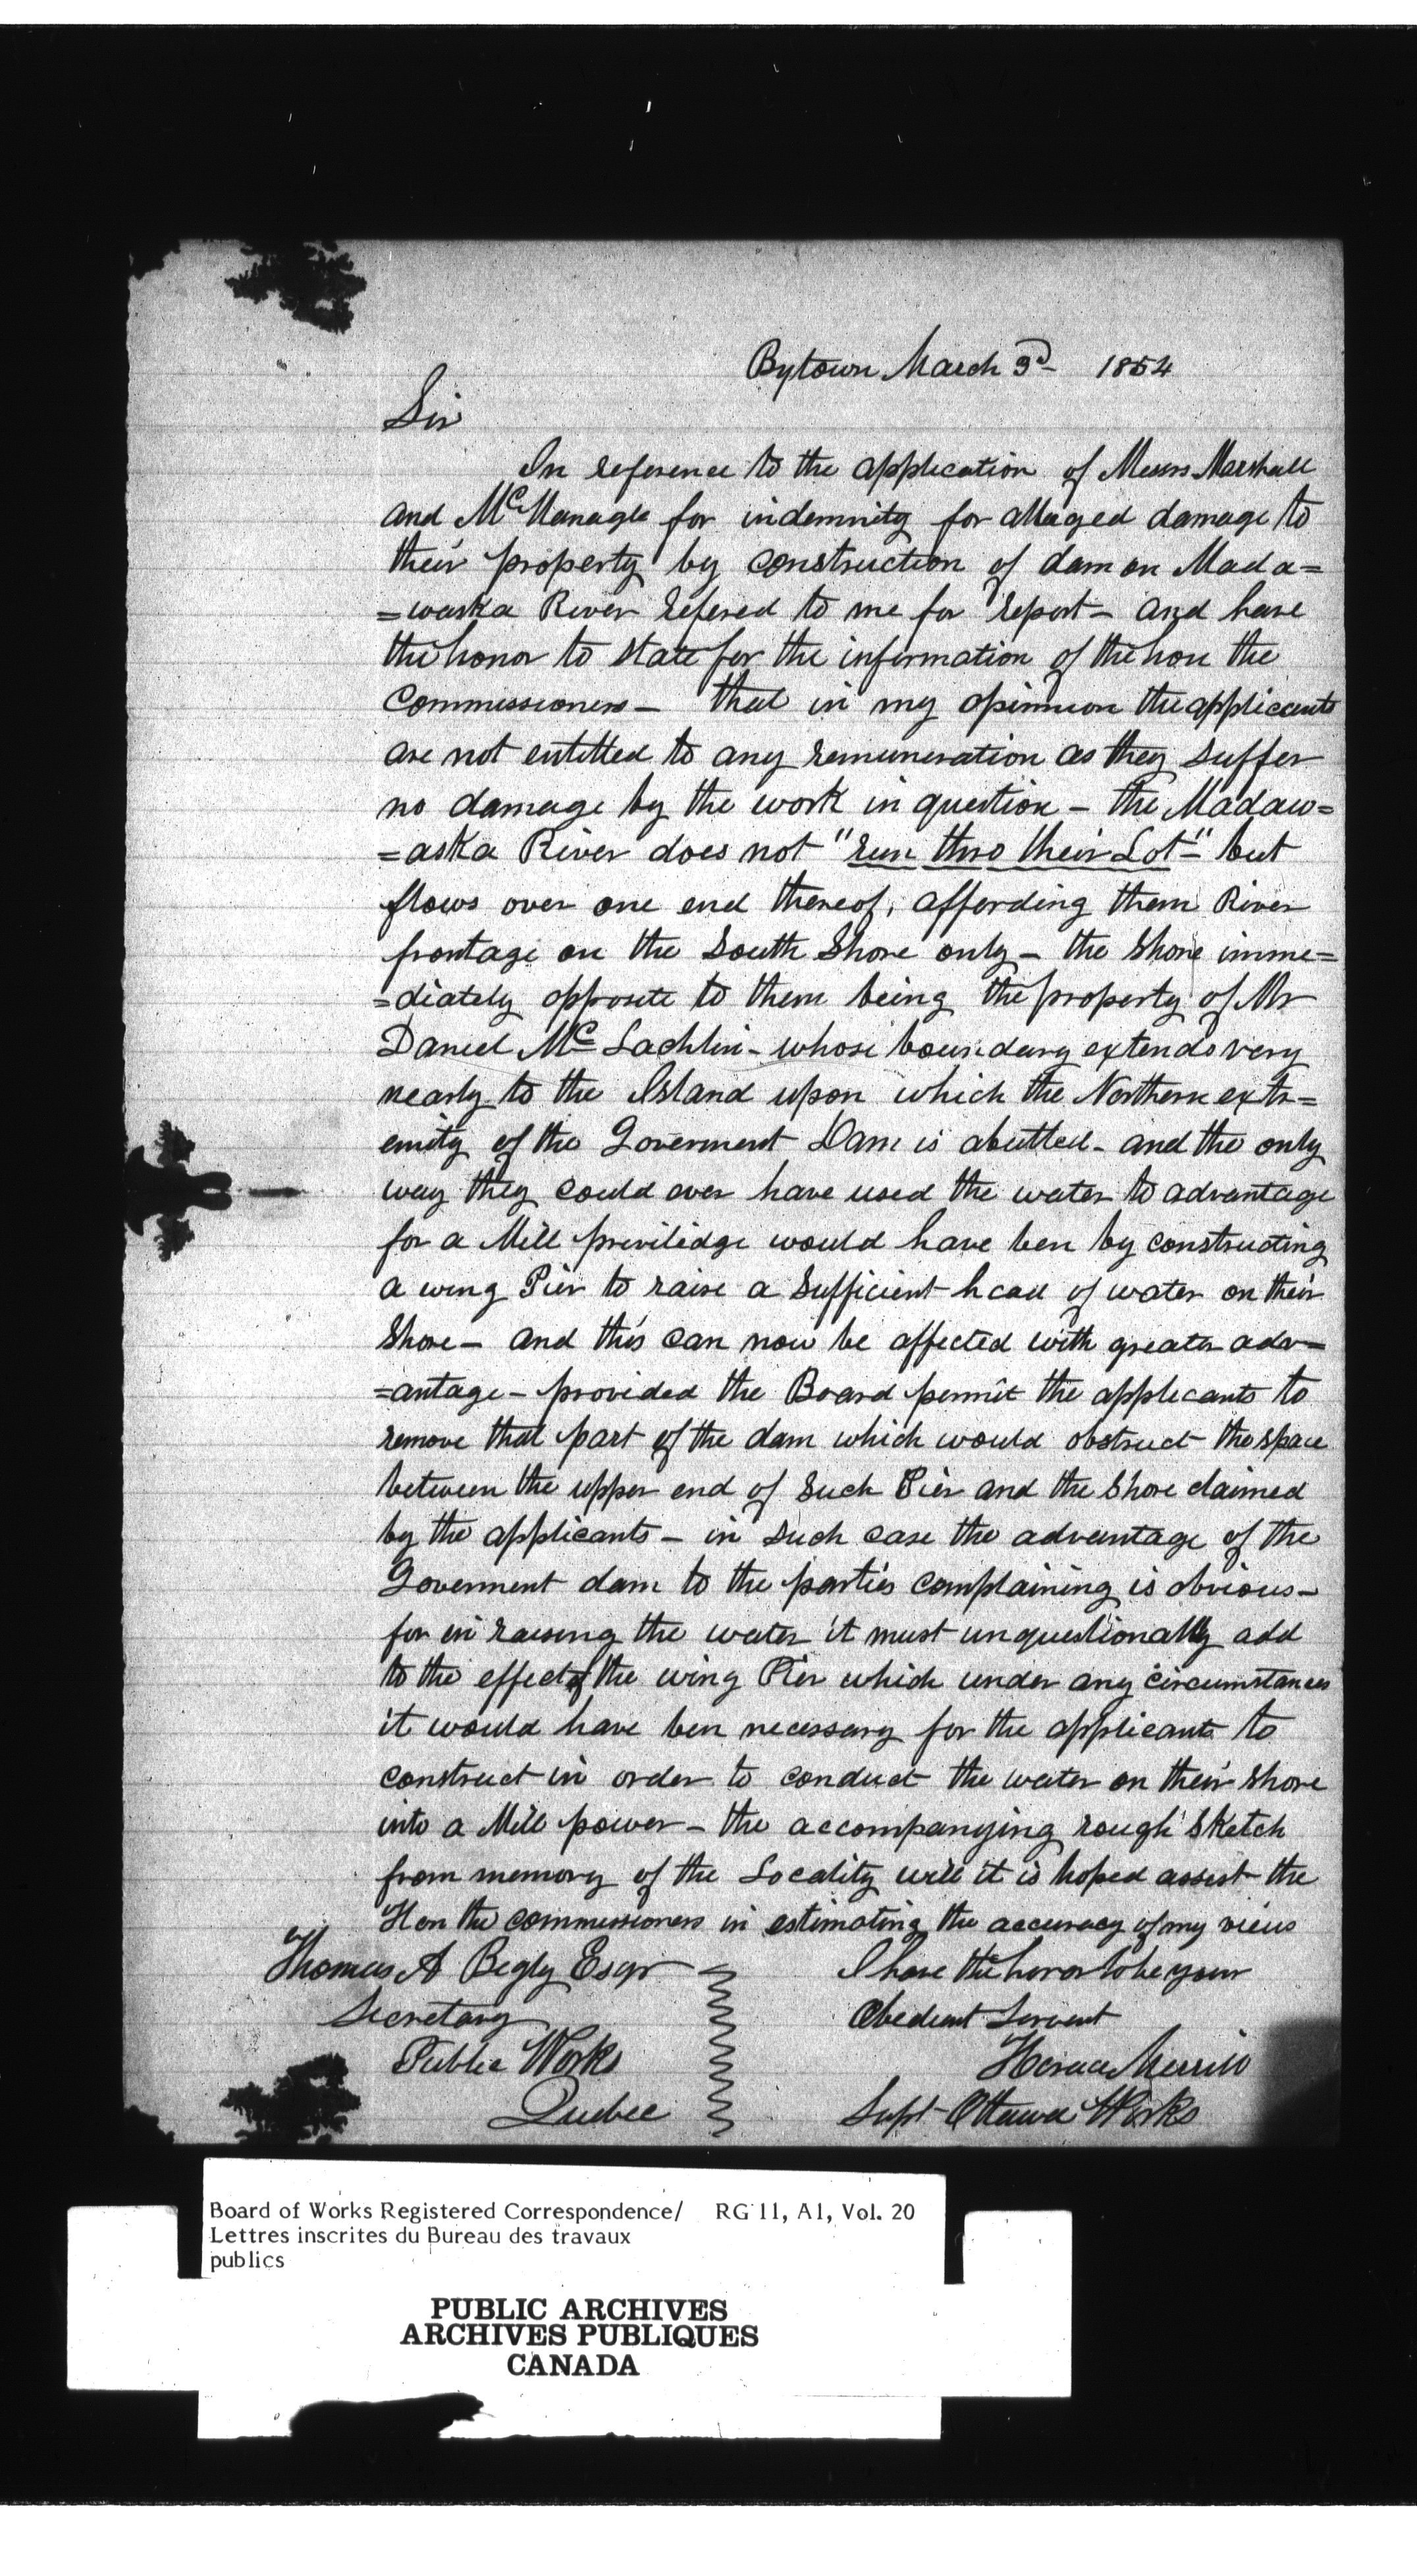 Bytown March 3d 1854
Sir
In reference to the application of Messrs Marshall
and McManagle for indemnity for alleged damage to
their property by construction of dam on Mada=
=waska River refered to me for report - and have
the honor to state for the information of the hon the
Commissioners - that in my opinnion the applicants
are not entitled to any remuneration as they suffer
no damage by the work in question - the Madaw=
=aska River does not "run thro their Lot" but
flows over one end thereof, affording them River
frontage on the South Shore only - the Shore imme=
=diately opposite to them being the property of Mr
Daniel McLachlin - whose boundary extends very
nearly to the Island upon which the Northern extr=
emity of the Goverment Dam is abutted - and the only
way they could ever have used the water to advantage
for a Mill priviledge would have ben by constructing
a wing Pier to raise a Sufficient head of water on their
Shore - and this can now be affected with greater adv=
=antage - provided the Board permit the applicants to
remove that part of the dam which would obstruct the space
between the upper end of Such Pier and the Shore claimed
by the applicants - in such case the advantage of the
Goverment dam to the parties complaining is obvious -
for in raising the water it must unquestionally add
to the effect of the wing Pier which under any circumstances
it would have ben necessary for the applicants to
construct in order to conduct the water on their Shore
into a Mill power - the accompanying rough Sketch
from memory of the Locality will it is hoped assist the
Hon the commissioners in estimating the accuracy of my views
Thomas A Begly Esqr
I have the honor to be your
Secretary
Obedient Servent
Public Works
Horace Merrill
Quebec
Supt Ottawa Works
Board of Works Registered Correspondence/ RG 11, A1, Vol. 20
Lettres inscrites du Bureau des travaux
publics
PUBLIC ARCHIVES
ARCHIVES PUBLIQUES
CANADA